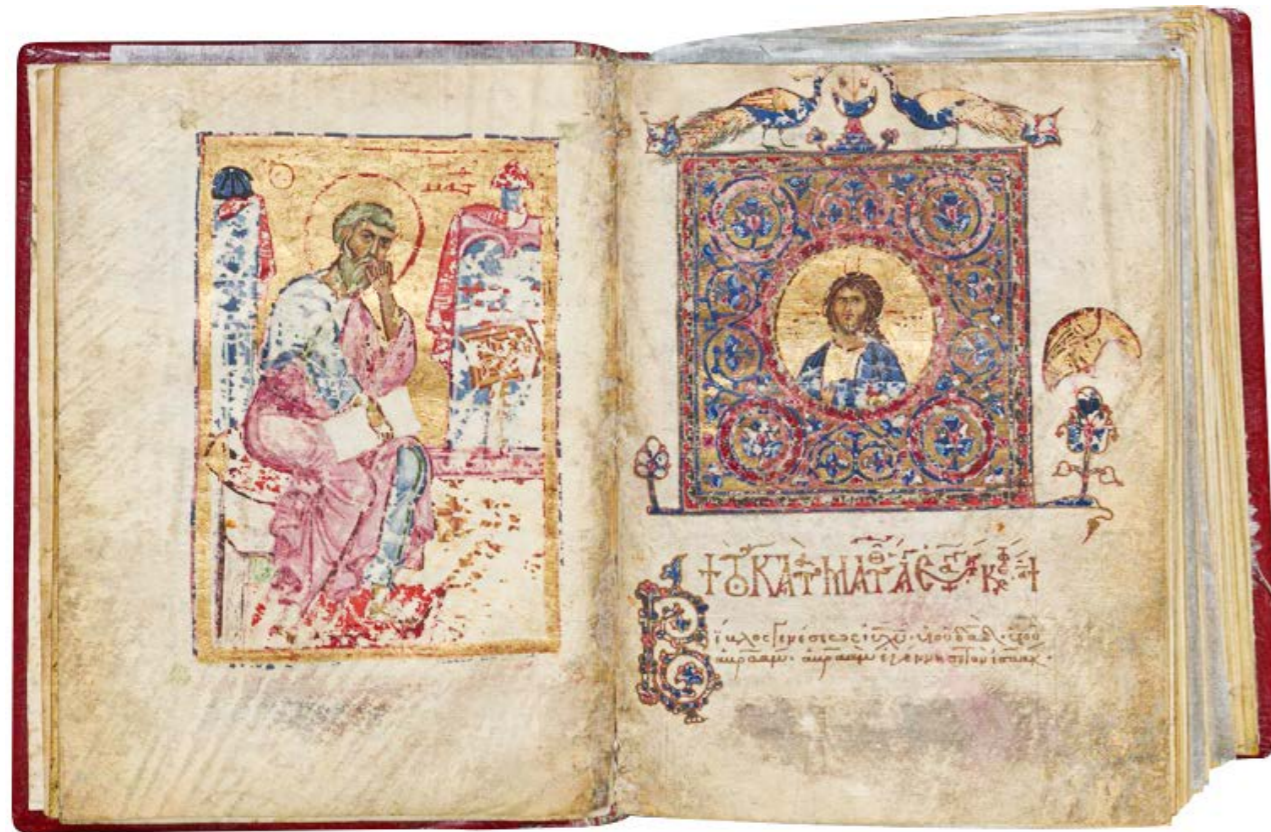 ματ
+ΤΟ ΚΑΤ ΜΑΤΘ
Βίβλος γενέσεως ιυ χυ· υἱοῦ δαδ· υἱοῦ
ἀβραάμ· ἀβραὰμ ἐγέννησε τὸν ἰσαάκ·